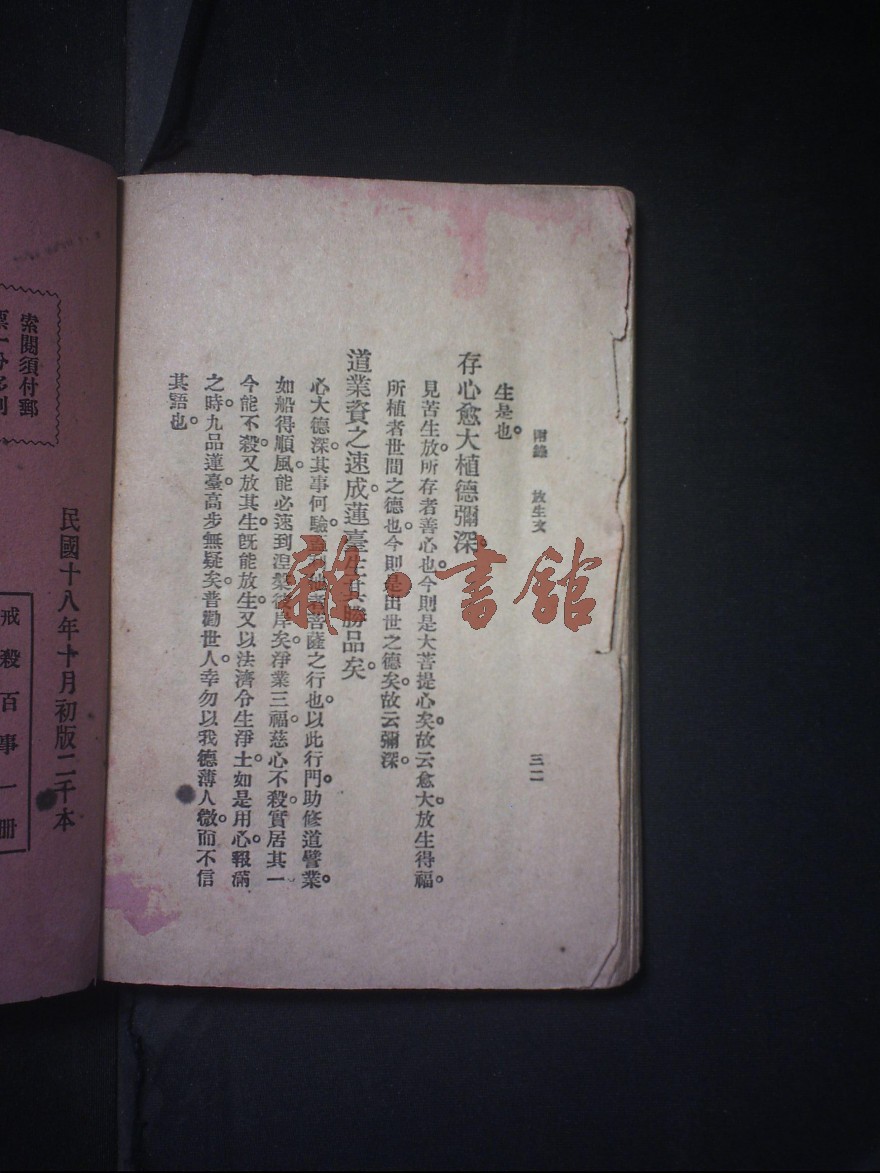 附錄 放生文 三二
生是也。
存心愈大植德彌深。
見苦生放所存者善心也今則是大菩提心矣。故云愈大。放生得福。
所植者世間之德也今則是出世之德矣。故云彌深。
道業資之速成。蓮臺生其勝品矣。
心大德深。其事何驗。蓋利他者菩薩之行也。以此行門。助修道譬業。
如船得順風。能必速到涅槃彼岸矣。淨業三福。慈心不殺。實居其一。
今能不殺。又放其生。旣能放生。又以法濟令生淨土。如是用心。報滿
之時。九品蓬臺。高步無疑矣。普勸世人。幸勿以我德薄人微。而不信
其語也。
雜·書館
索閱須付郵
票一分多則
民國十八年十月初版二千本
戒殺百事一册